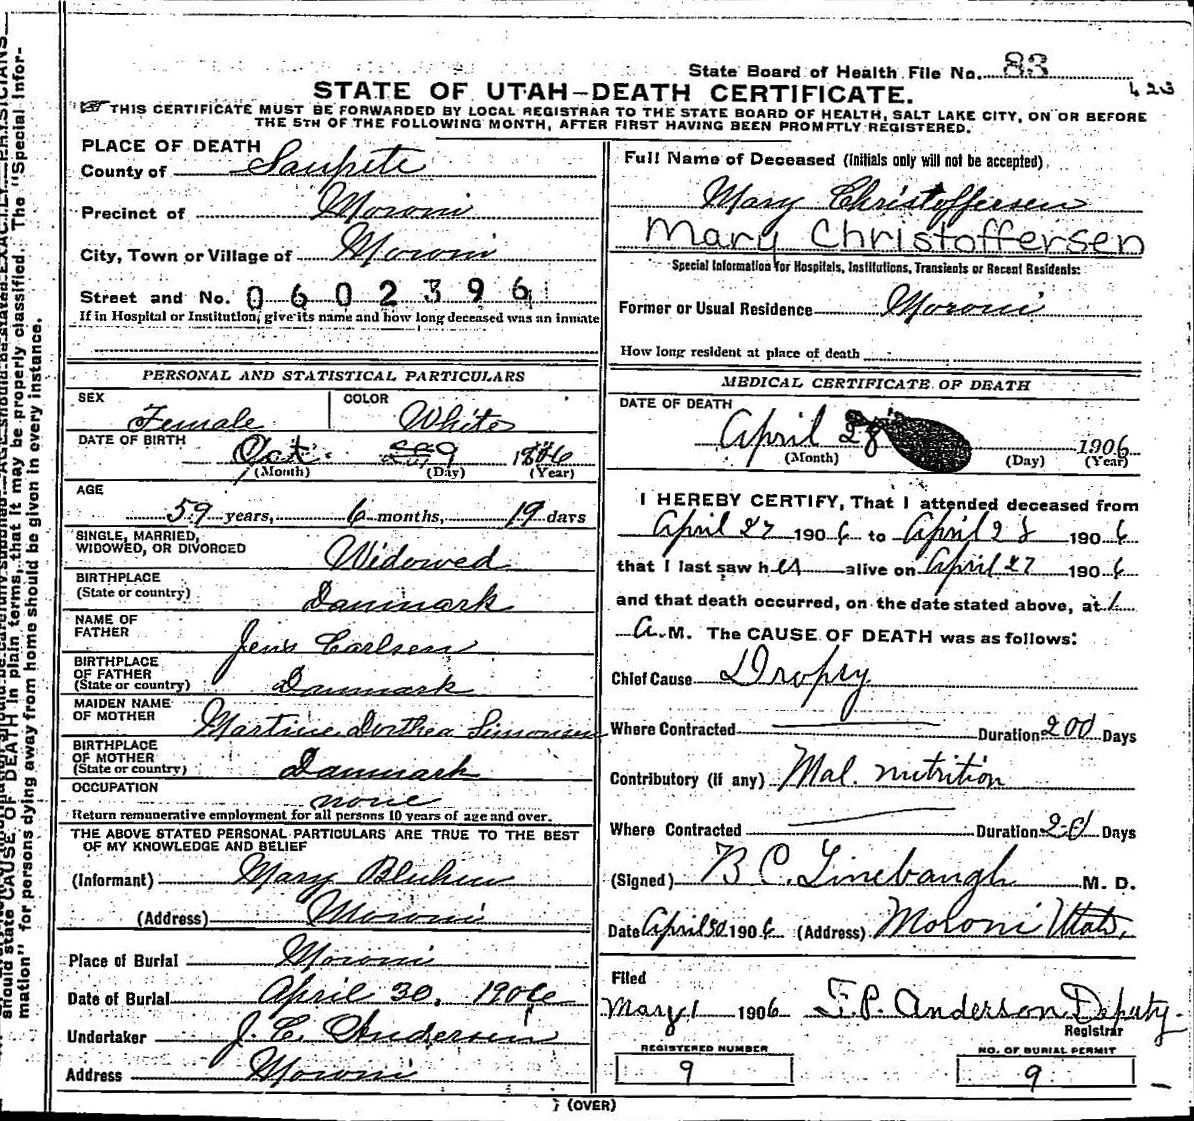 State Board of Health File No. 83
423
STATE OF UTAH-DEATH CERTIFICATE.
THIS CERTIFICATE MUST BE FORWARDED BY LOCAL REGISTRAR TO THE STATE BOARD OF HEALTH, SALT LAKE CITY, ON OR BEFORE
THE 5TH OF THE FOLLOWING MONTH, AFTER FIRST HAVING BEEN PROMPTLY REGISTERED.
PLACE OF DEATH
County of Sanpete
Precinct of Moroni
City, Town or Village of Moroni
Street and No. 0602396
If in Hospital or Institution, give its name and how long deceased was an inmate
PERSONAL AND STATISTICAL PARTICULARS
SEX Female
COLOR White
DATE OF BIRTH Oct. 9 1846
(Month) (Day) (Year)
AGE
59 years, 6 months, 19 days
SINGLE, MARRIED,
WIDOWED, OR DIVORCED Widowed
BIRTHPLACE
(State or country) Danmark
NAME OF
FATHER Jens Carlsen
BIRTHPLACE
OF FATHER
(State or country) Danmark
MAIDEN NAME
OF MOTHER Martine Dorthea Simonsen
BIRTHPLACE
OF MOTHER
(State or country) Danmark
OCCUPATION none
Return remunerative employment for all persons 10 years of age and over.
THE ABOVE STATED PERSONAL PARTICULARS ARE TRUE TO THE BEST
OF MY KNOWLEDGE AND BELIEF
(Informant) Mary
(Address) Moroni
Place of Burial Moroni
Date of Burial April 30, 1906
Undertaker J. C. Andersen
Address Moroni
Full Name of Deceased (Initials only will not be accepted)
Mary Christoffersen
Mary Christoffersen
Special Information for Hospitals, Institutions, Transients or Recent Residents:
Former or Usual Residence Moroni
How long resident at place of death
MEDICAL CERTIFICATE OF DEATH
DATE OF DEATH
April 28 1906
(Month) (Day) (Year)
I HEREBY CERTIFY, That I attended deceased from
April 27 1906 to April 28 1906
that I last saw her alive on April 27 1906
and that death occurred, on the date stated above, at 1
A.M. The CAUSE OF DEATH was as follows:
Chief Cause Dropsy
Where Contracted Duration 200 Days
Contributory (if any) Mal. nutrition
Where Contracted Duration Days
(Signed) B C. Linebaugh M. D.
Date April 30 1906 (Address) Moroni Utah.
Filed
May 1 1906 F.P. Anderson Deputy
Registrar
REGISTERED NUMBER
9
NO. OF BURIAL PERMIT
9
(OVER)
should state CAUSE OF DEATH in plain terms, that it may be properly classified. The "Special Infor-
mation" for persons dying away from home should be given in every instance.